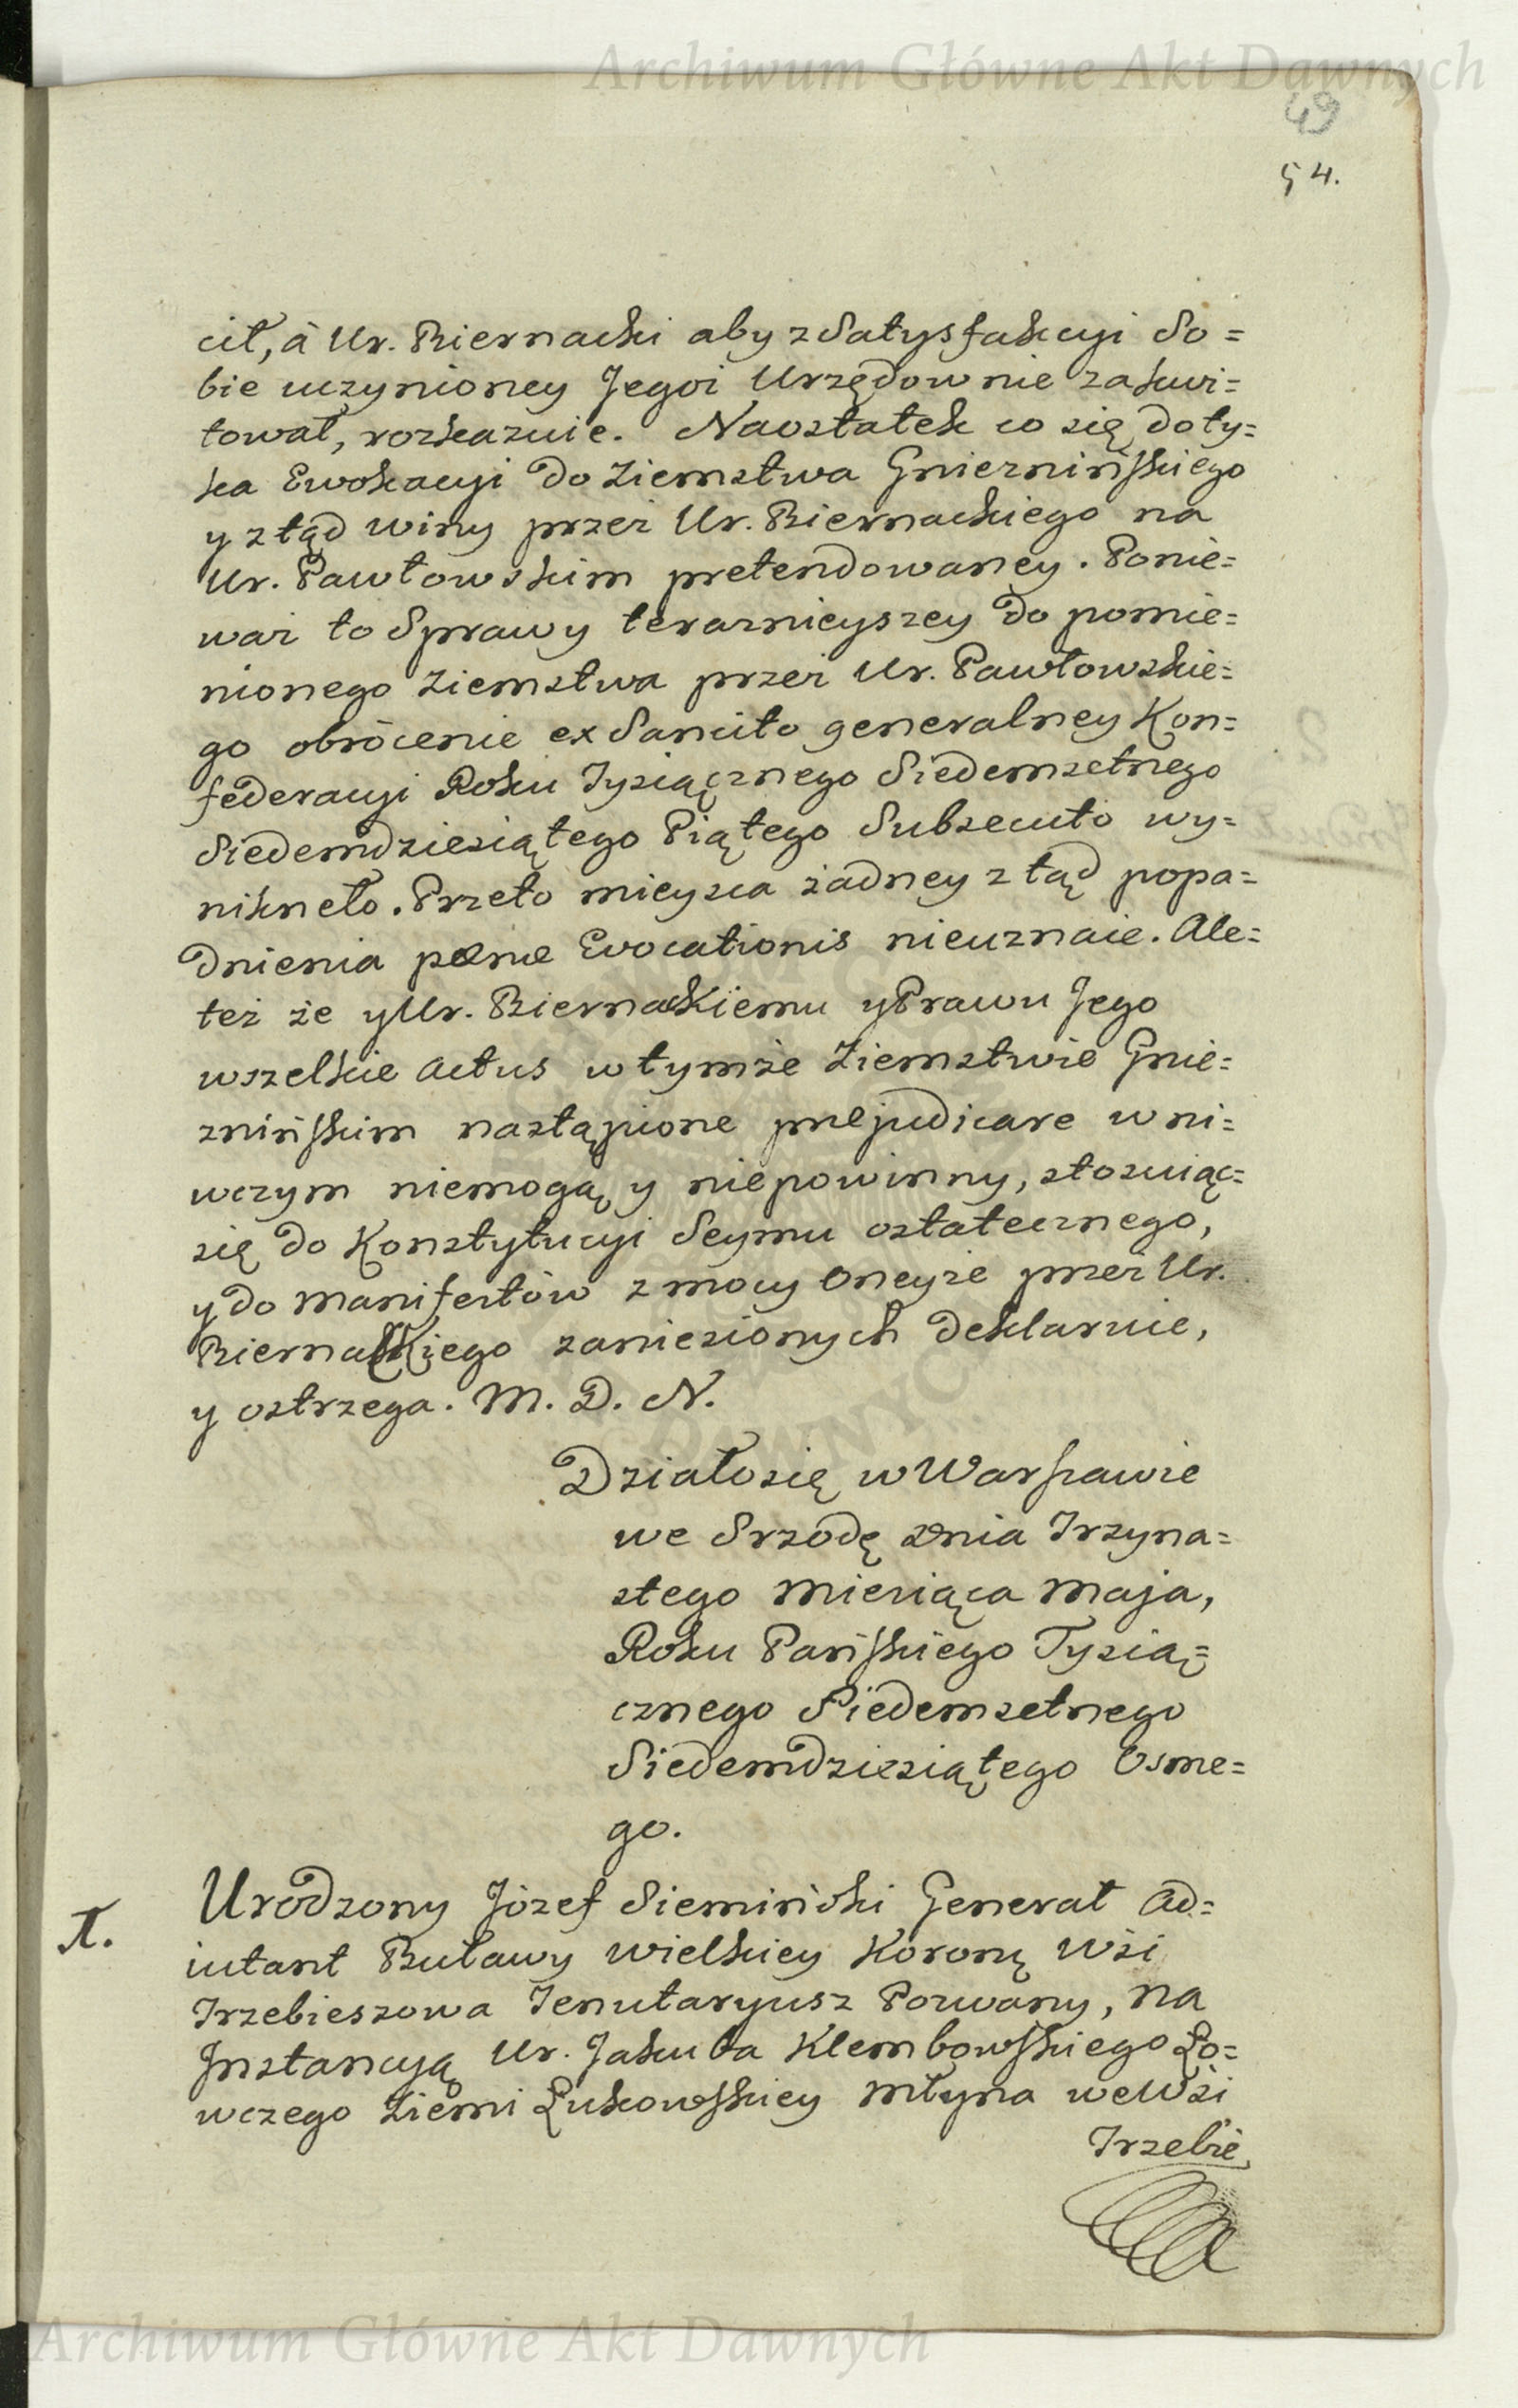 Archiwum Główne Akt Dawnych
49
54.
cił, à Ur. Biernacki aby z Satysfakcyi So=
bie uczynioney Jegoż Urzędownie zakwi=
tował, rozkazuie. Naostatek co się doty=
ka Ewokacyi do Ziemstwa Gnieznińskiego
y ztąd winy przez Ur. Biernackiego na
Ur. Pawłowskim pretendowaney. Ponie=
waż to Sprawy teraznieyszey do pomie=
nionego Ziemstwa przez Ur. Pawłowskie=
go obrócenie ex Sancito generalney Kon=
federacyi Roku Tysiącznego Siedemsetnego
Siedemdziesiątego Piątego Subsecuto wy=
nikneło. Przeto mieysca żadney ztąd popa=
dnienia pænæ Evocationis nieuznaie. Ale=
też że y Ur. Biernackiemu y Prawu Jego
wszelkie actus w tymże Ziemstwie Gnie=
znińskim nastąpione præjudicare w ni=
wczym niemogą y niepowinny, stosuiąc=
się do Konstytucyi Seymu ostatecznego,
y do Manifestów z mocy oneyże przez Ur.
Biernackiego zaniesionych deklaruie,
y ostrzega. M. D. N.
Działo się w Warszawie
we Srzodę dnia Trzyna=
stego Miesiąca Maja,
Roku Pańskiego Tysią=
cznego Siedemsetnego
Siedemdziesiątego Osme=
go.
Urodzony Józef Siemiński Generał Ad=
iutant Buławy Wielkiey Koronę Wsi
Trzebieszowa Tenutaryusz Pozwany, na
Instancyą Ur. Jakuba Klembowskiego Ło=
wczego Ziemi Łukowskiey Młyna we Wsi
Trzebie
Archiwum Główne Akt Dawnych